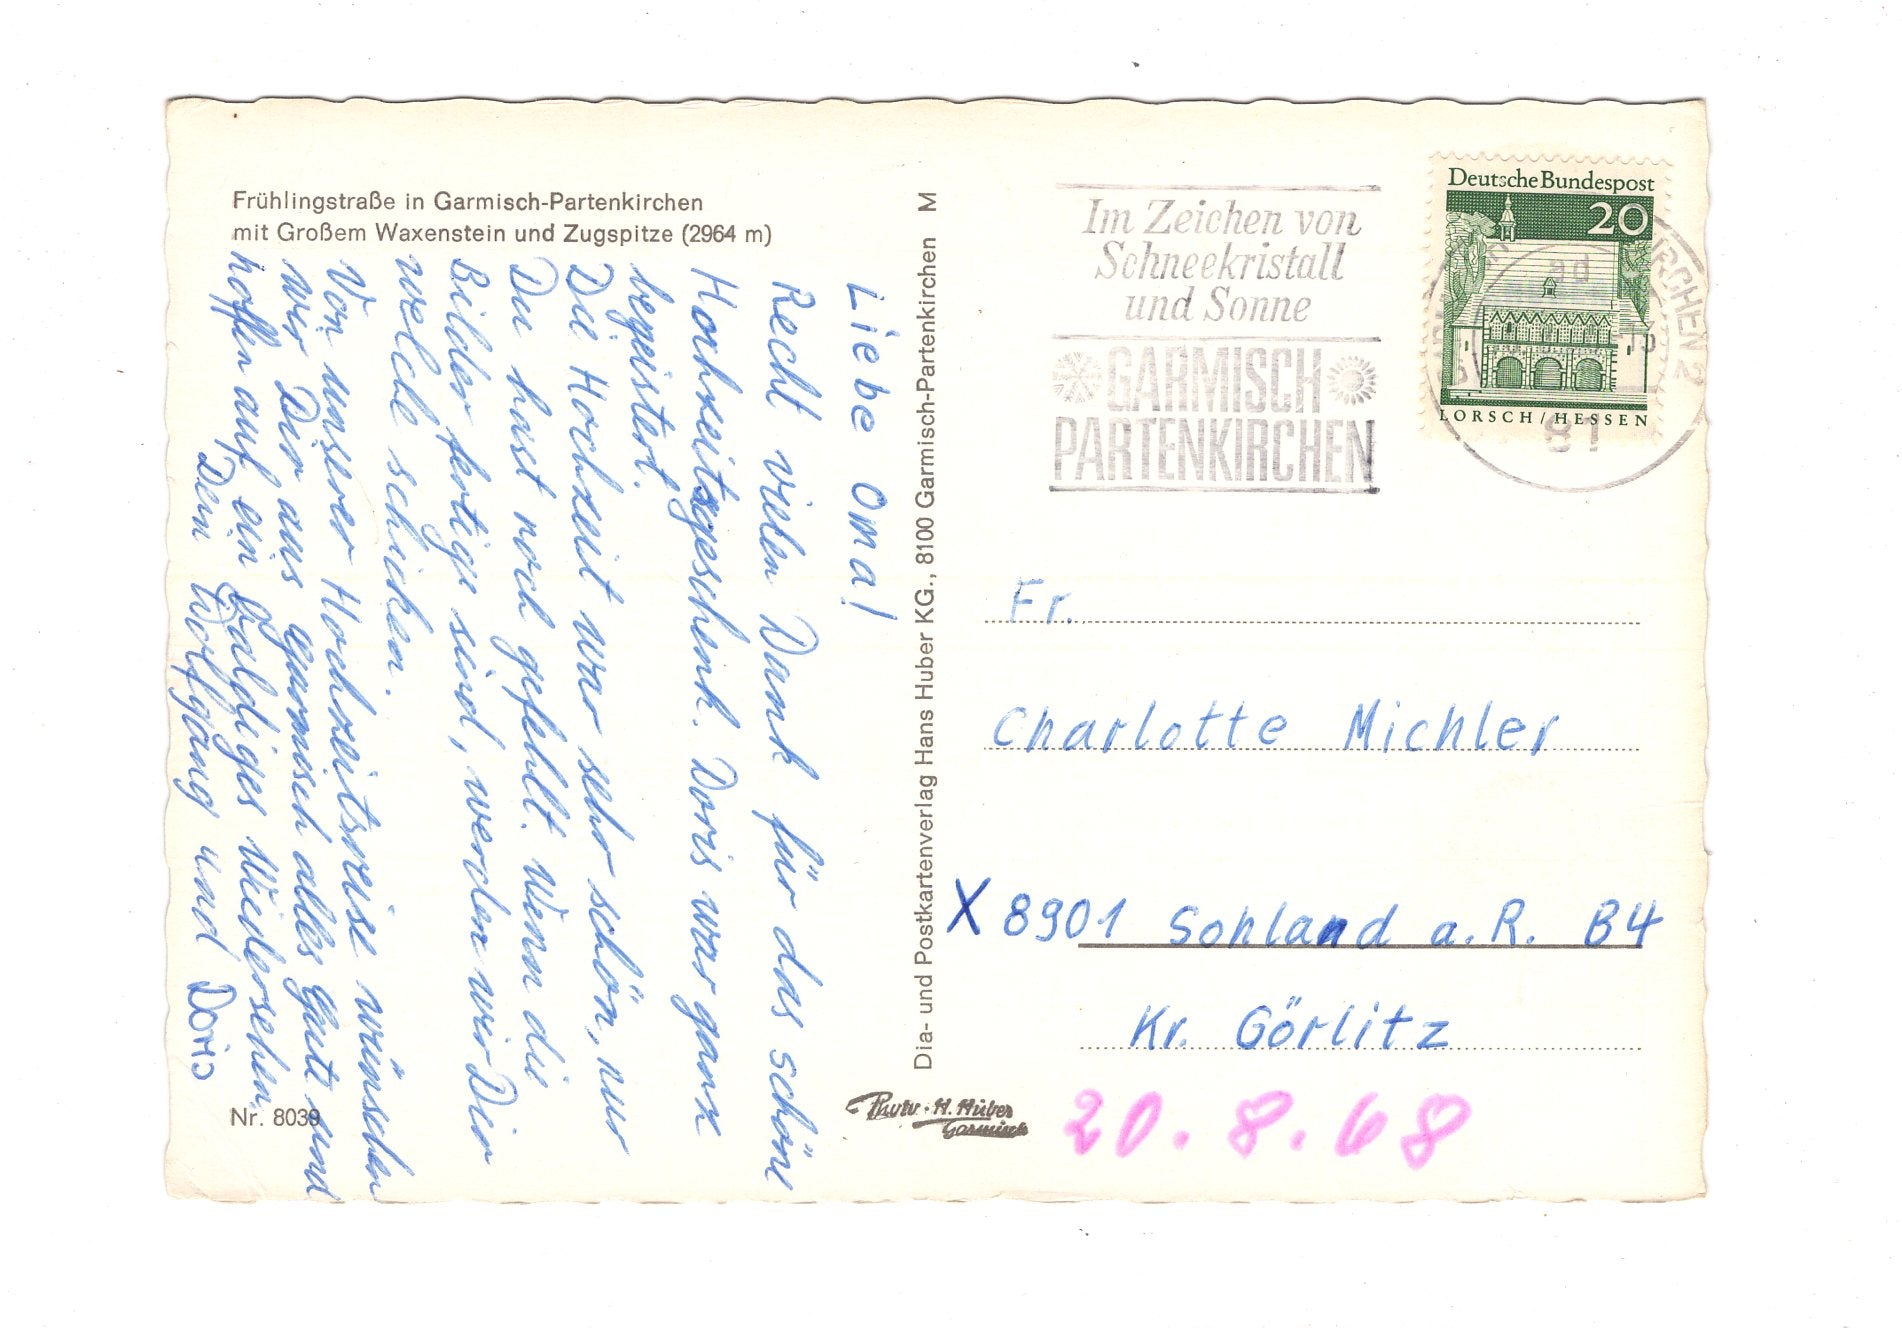 Frühlingstraße in Garmisch-Partenkirchen
mit Großem Waxenstein und Zugspitze (2964 m)
Liebe Oma!
Recht vielen Dank für das schöne
Hochzeitsgeschenk. Doris war ganz
begeistert.
Die Hochzeit war sehr schön, nur
Du hast noch gefehlt. Wenn die
Bilder fertig sind, werden wir Dir
welche schicken.
Von unserer Hochzeitsreise wünschen
wir Dir aus Garmisch alles Gute und
hoffen auf ein baldiges Wiedersehen.
Dein Wolfgang und Doris
Nr. 8039
Dia- und Postkartenverlag Hans Huber KG., 8100 Garmisch-Partenkirchen M
H. Huber
Garmisch
Im Zeichen von
Schneekristall
und Sonne
GARMISCH
PARTENKIRCHEN
Deutsche Bundespost
20
LORSCH/HESSEN
ad
81
Fr.
Charlotte Michler
X 8901 Sohland a. R. 84
Kr. Görlitz
20.8.68